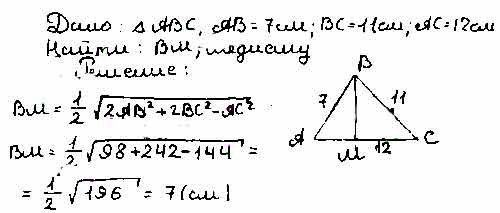 Дано: △ ABC, AB = 7 см; BC = 11 см; AC = 12 см
Найти: BM, медиану
Решение:
BM = 1/2 √(2AB² + 2BC² - AC²)
BM = 1/2 √(98 + 242 - 144) =
= 1/2 √196 = 7 (см)
B
7
11
A
M
12
C